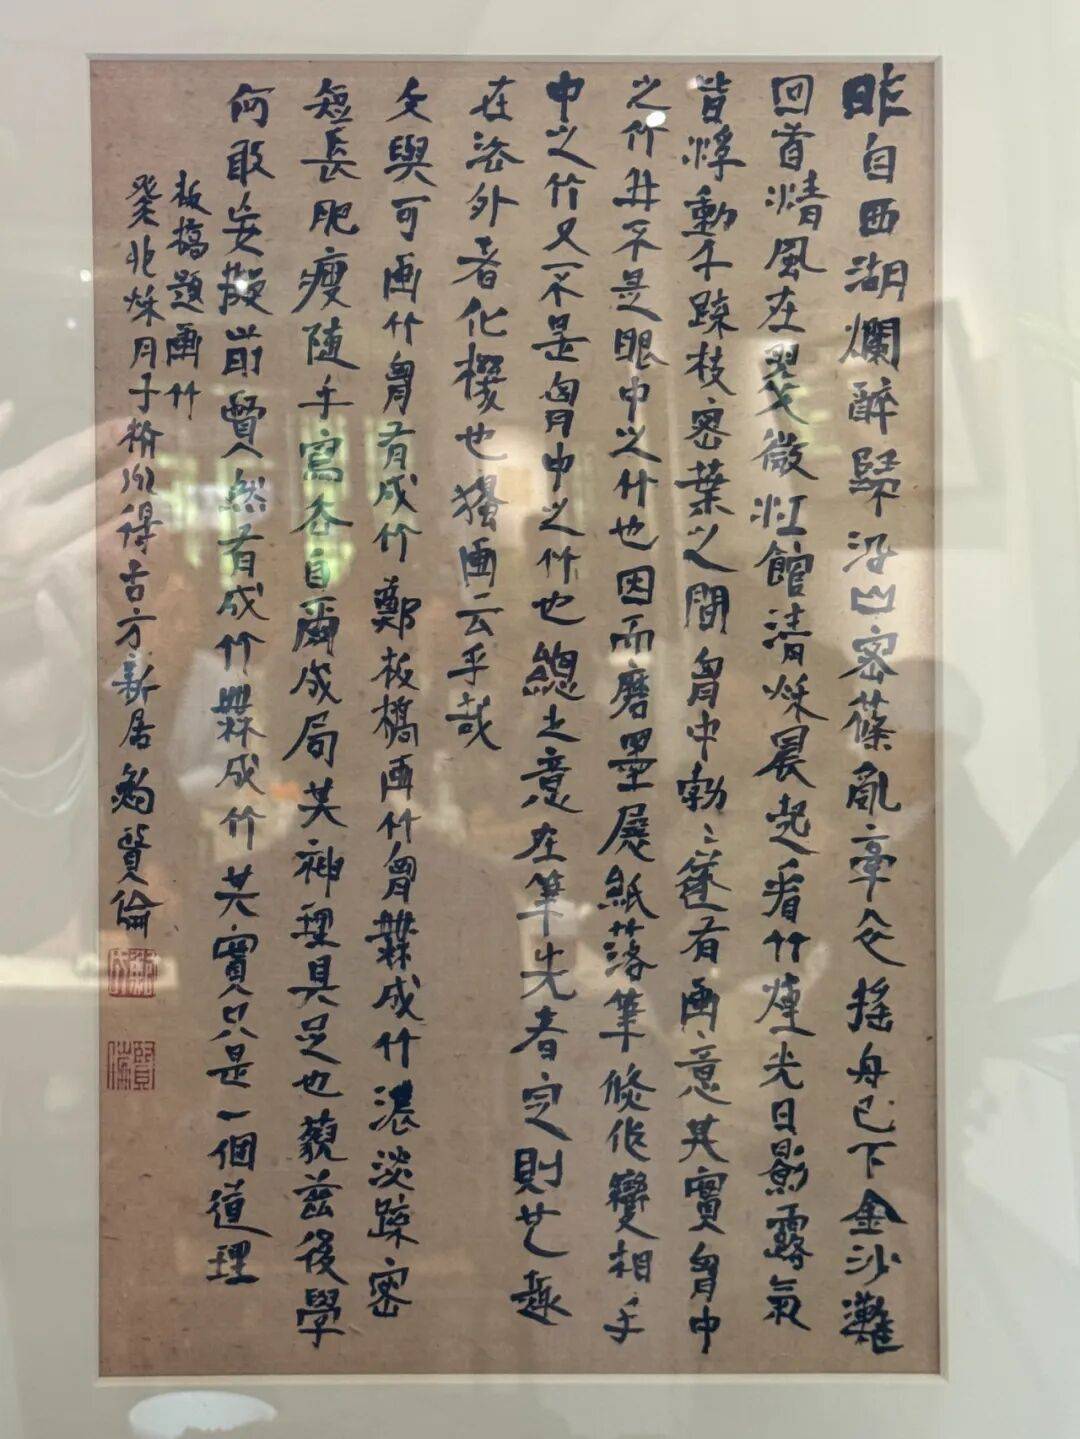 昨自西湖爛醉歸沿山密篠亂牽衣搖舟已下金沙灘
回首清風在翠微江館清秋晨起看竹煙光日影露氣
皆浮動于疎枝密葉之間胷中勃〻遂有画意其實胷中
之竹并不是眼中之竹也因而磨墨展紙落筆倐作變相手
中之竹又不是胷中之竹也總之意在筆先者定則也趣
在法外者化機也獨画云乎哉
文與可画竹胷有成竹鄭板橋画竹胷無成竹濃淡疎密
短長肥瘦隨手寫去自爾成局其神理具足也藐茲後學
何敢妄擬前賢然有成竹無成竹其實只是一個道理
板橋題画竹
癸卯秋月于得古方新居鮑賢倫
賢倫